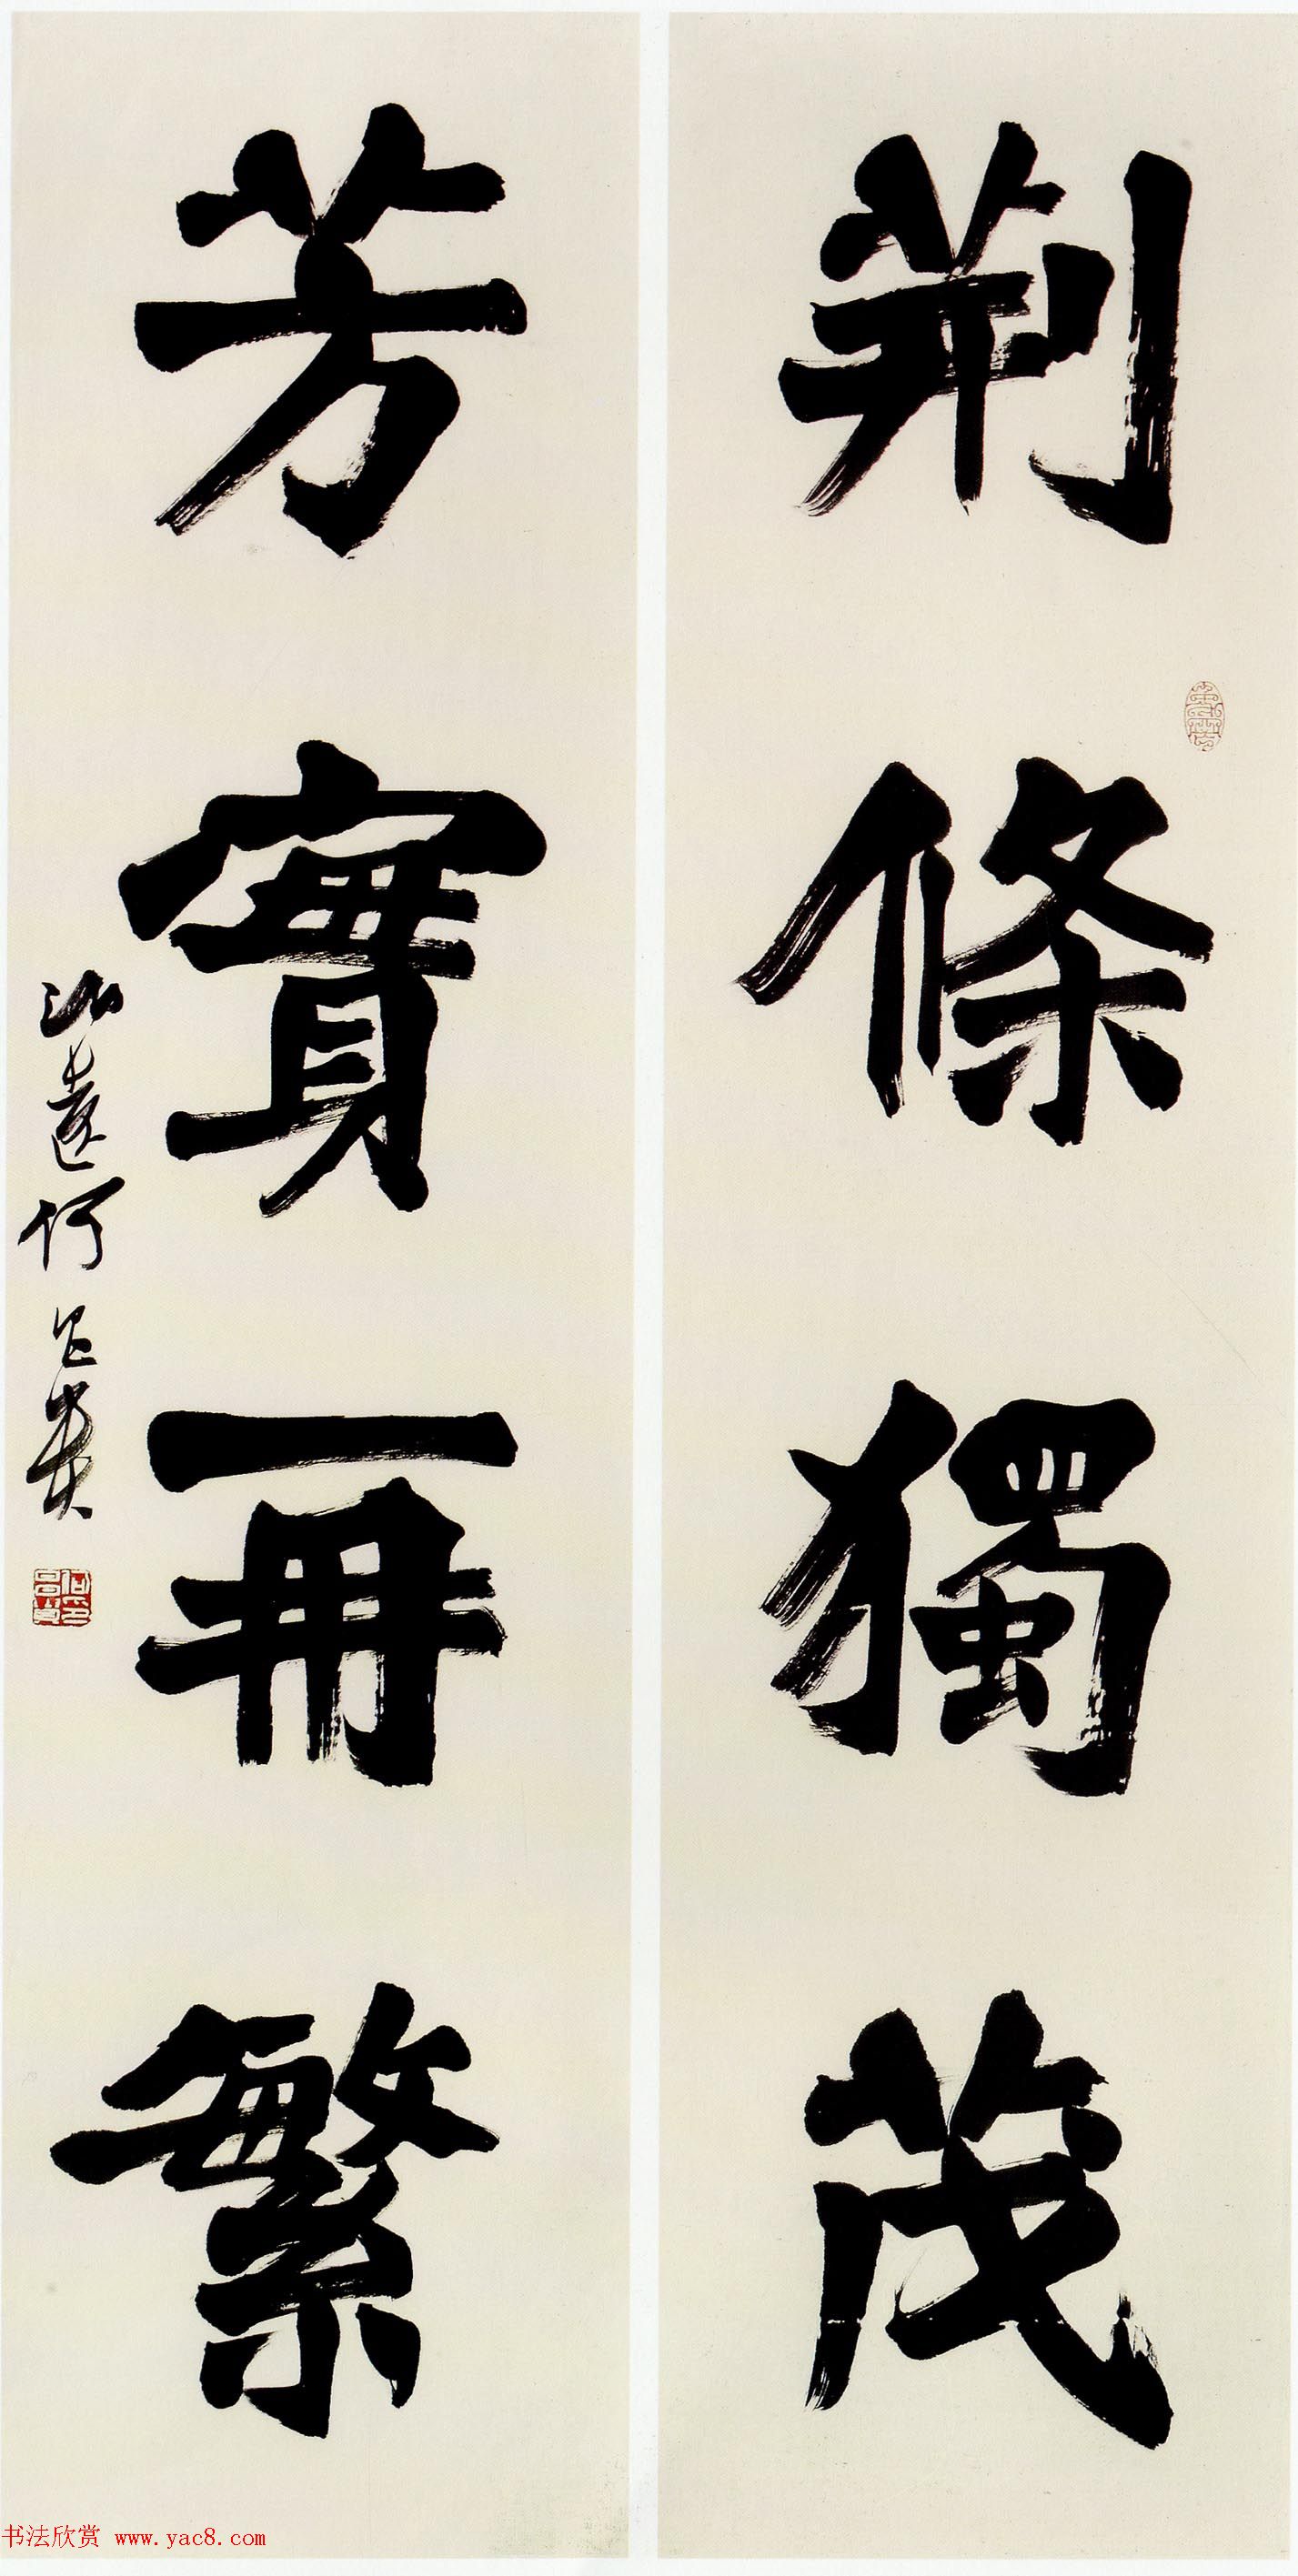 荆條獨茂
芳實再繁
沁遠何昌貴
书法欣赏 www.yac8.com